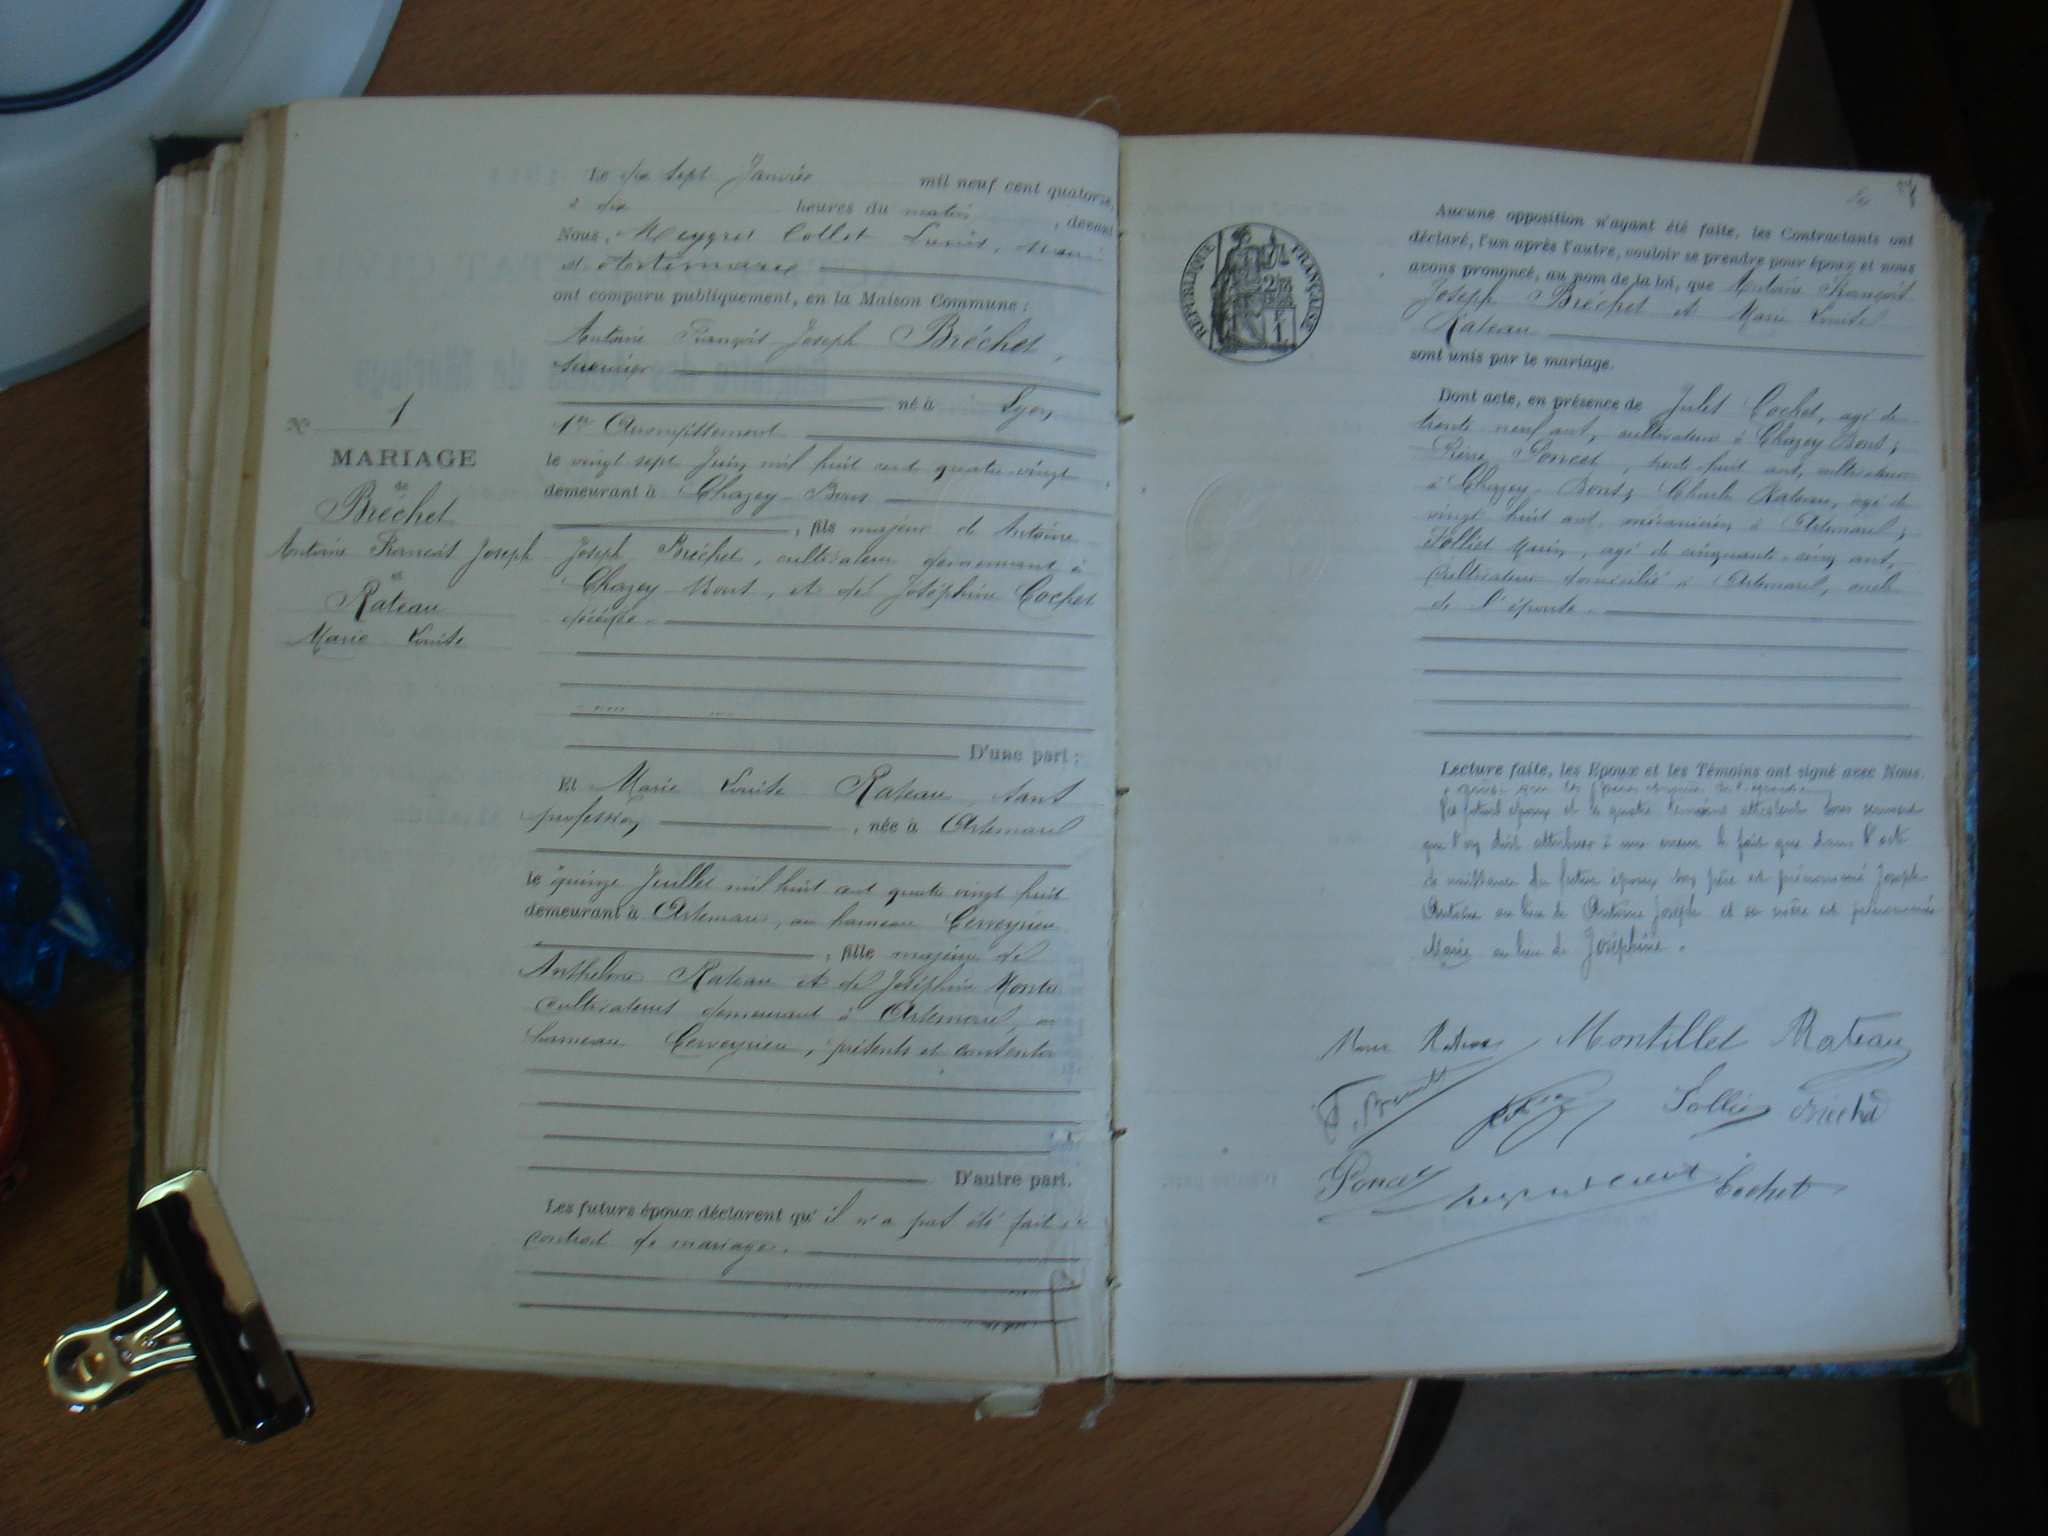 Le dix sept Janvier mil neuf cent quatorze,
à dix heures du matin, devant
Nous, Meygret Collet, Maire
d'Artemare
ont comparu publiquement, en la Maison Commune :
Antoine François Joseph Bréchet,
né à Lyon
1er Arrondissement
le vingt sept Juin mil huit cent quatre-vingt
demeurant à Chazey-Bons
, fils majeur de Antoine
Joseph Bréchet, cultivateur demeurant à
Chazey-Bons, et de Joséphine Cochet
décédée.
D'une part ;
Et Marie Louise Rateau, sans
profession, née à Artemare
le quinze Juillet mil huit cent quatre vingt huit
demeurant à Artemare, au hameau Cerveyrieu
, fille majeure de
Anthelme Rateau et de Joséphine
cultivateurs demeurant à Artemare, au
hameau Cerveyrieu, présents et
D'autre part.
Les futurs époux déclarent qu'il n'a pas été fait de
contrat de mariage.
N° 1
MARIAGE
de
Bréchet
Antoine François Joseph
et
Rateau
Marie Louise
RÉPUBLIQUE FRANÇAISE
Aucune opposition n'ayant été faite, les Contractants ont
déclaré, l'un après l'autre, vouloir se prendre pour époux et nous
avons prononcé, au nom de la loi, que Antoine François
Joseph Bréchet et Marie Louise
Rateau
sont unis par le mariage.
Dont acte, en présence de Jules Cochet, âgé de
trente neuf ans, cultivateur à Chazey Bons ;
Pierre Poncet, trente huit ans, cultivateur
à Chazey-Bons ; Charles Rateau, âgé de
vingt huit ans, mécanicien à Artemare ;
Jolliet, âgé de cinquante-cinq ans,
cultivateur domicilié à Artemare, oncle
de l'épouse.
Lecture faite, les Epoux et les Témoins ont signé avec Nous.
Les futurs époux et les quatre témoins attestent sous serment
que l'on doit attribuer à une erreur le fait que dans l'acte
de naissance du futur époux son père est prénommé Joseph
Antoine au lieu de Antoine Joseph et sa mère est prénommée
Marie au lieu de Joséphine.
Montillet Rateau
Jolliet Bréchet
Poncet Cochet